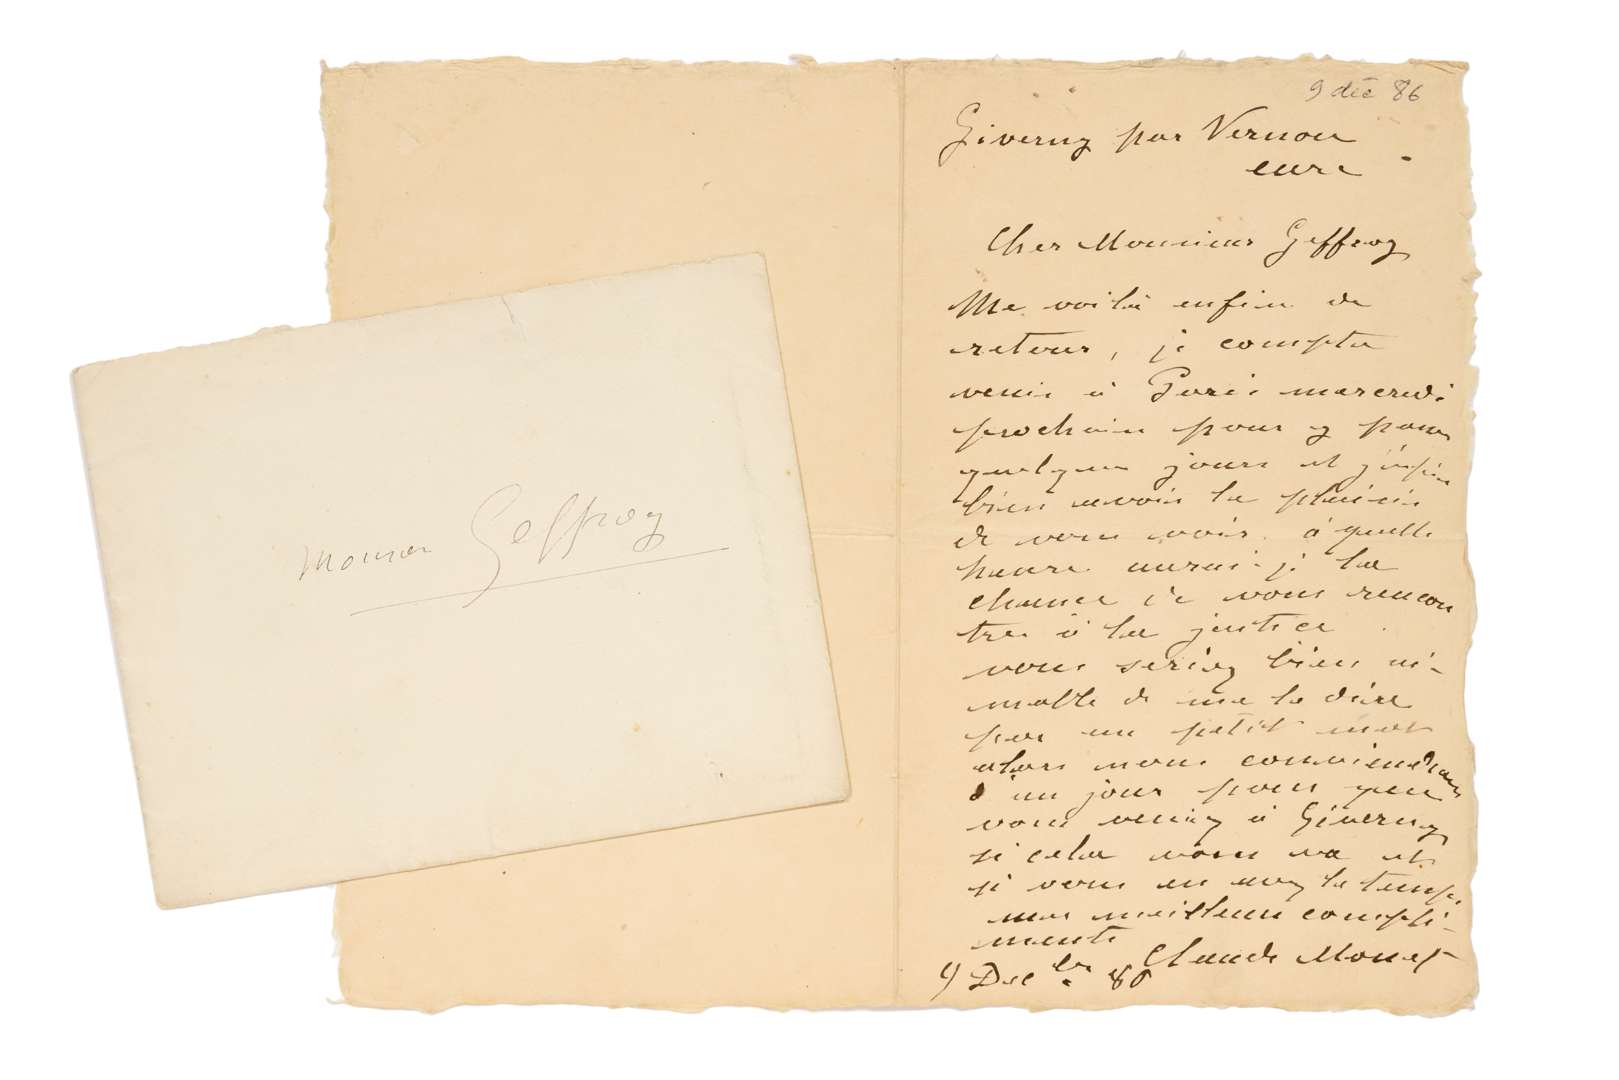 Monsieur Geffroy
9 déc 86
Giverny par Vernon
eure
Cher Monsieur Geffroy
Me voilà enfin de
retour, je compte
venir à Paris mercredi
prochain pour y passer
quelques jours et j'espère
bien avoir le plaisir
de vous voir. à quelle
heure aurai-je la
chance de vous rencon
trer à la justice
vous seriez bien ai-
mable de me le dire
par un petit mot
alors nous conviendrons
d'un jour pour que
vous veniez à Giverny
si cela vous va et
si vous en avez le temps.
mes meilleurs compli-
ments
Claude Monet
9 Dec bre 86